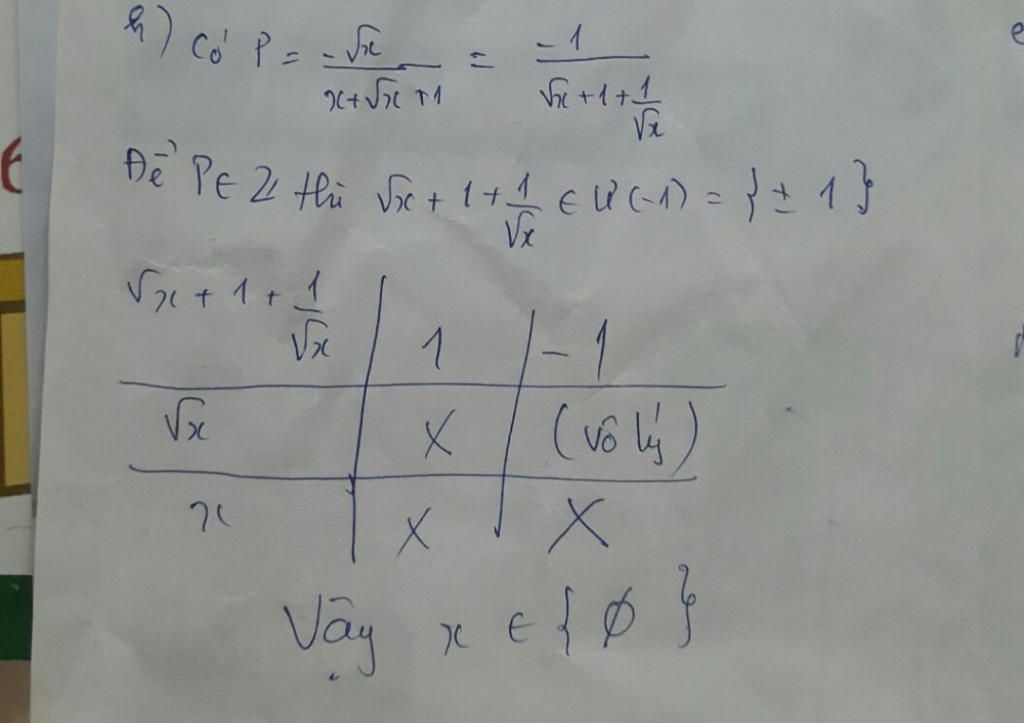 h) Có P = -√x / (x+√x+1) = -1 / (√x+1+1/√x)
Để P ∈ Z thì √x + 1 + 1/√x ∈ Ư(-1) = {± 1}
√x + 1 + 1/√x | 1 | -1
√x | X | (vô lý)
x | X | X
Vậy x ∈ {∅}